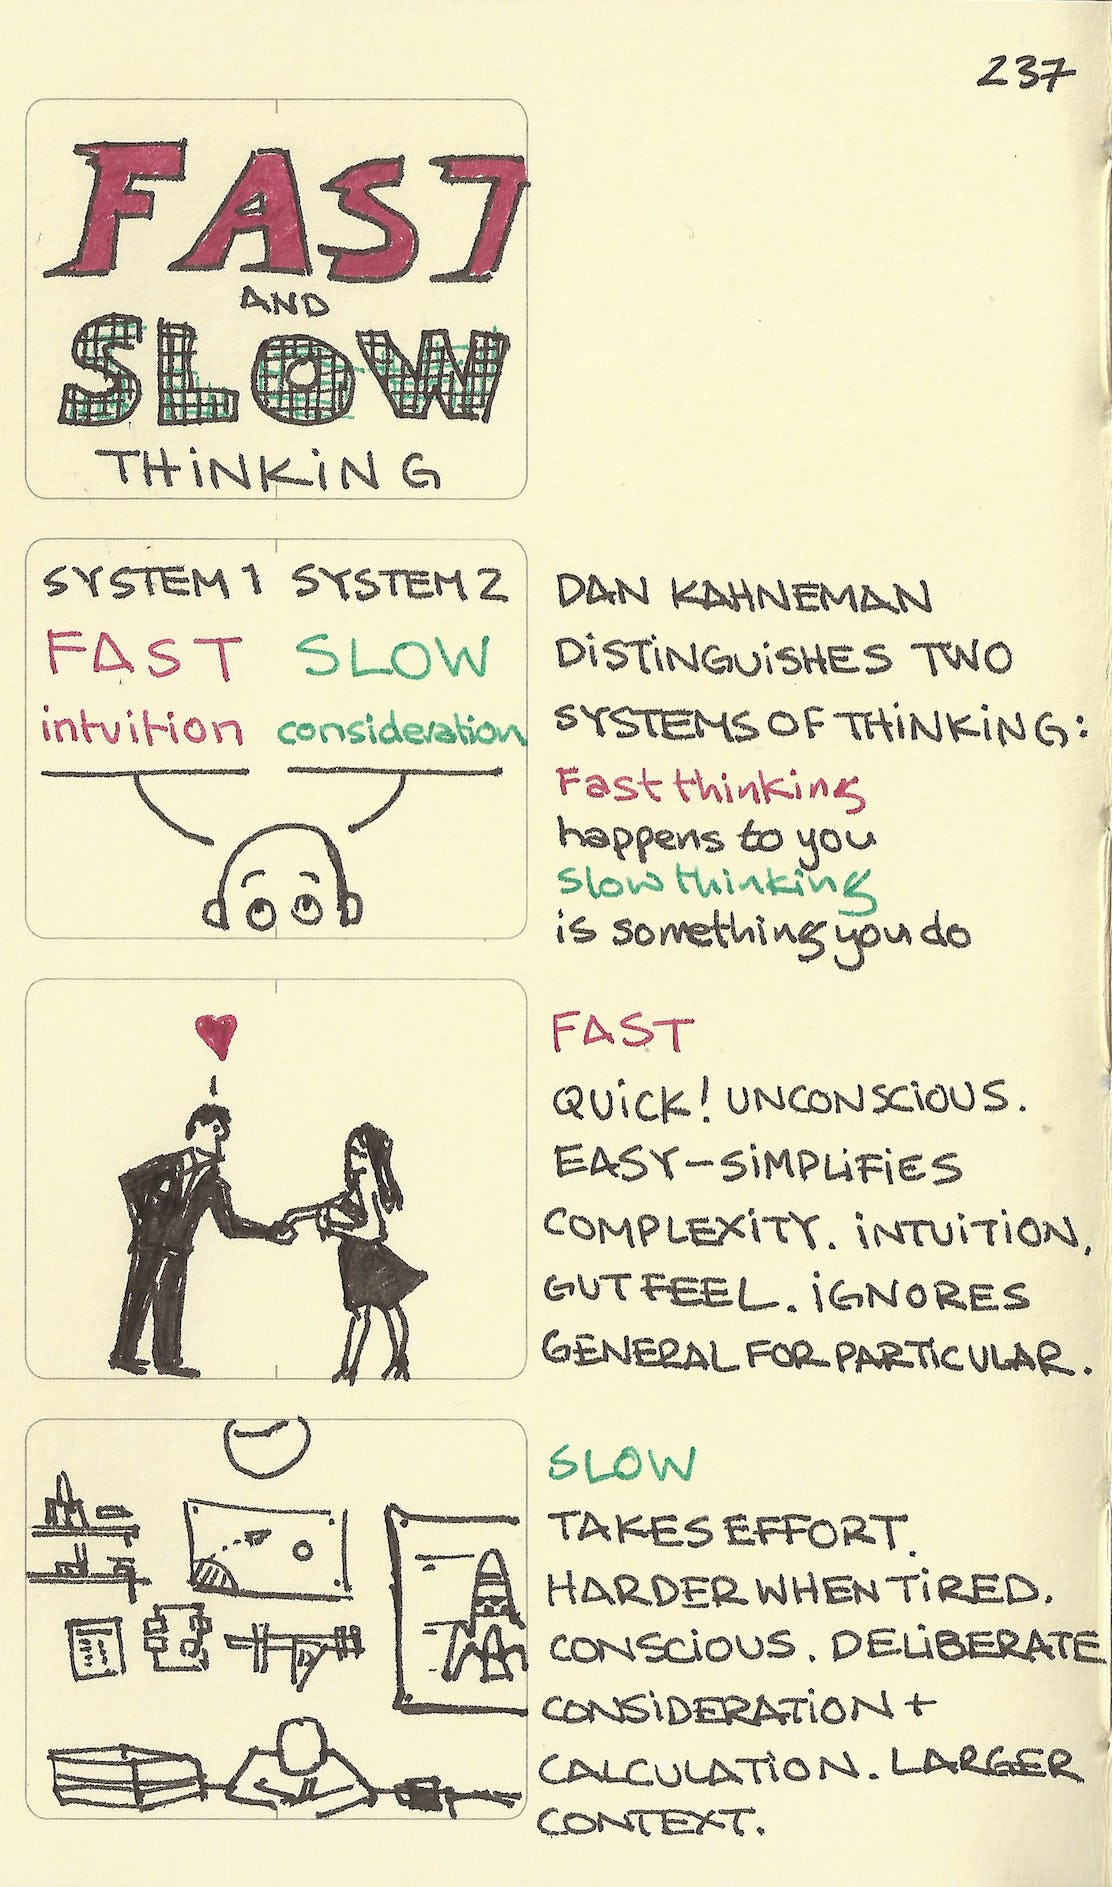 237
FAST
AND
SLOW
THiNKiNG
SYSTEM 1 SYSTEM 2
FAST SLOW
intuition consideration
DAN KAHNEMAN
DiSTiNGUiSHES TWO
SYSTEMS OF THiNKiNG:
Fast thinking
happens to you
Slow thinking
is something you do
FAST
QUiCK! UNCONSCiOUS.
EASY-SiMPLiFiES
COMPLEXiTY. iNTUiTiON,
GUT FEEL. iGNORES
GENERAL FOR PARTiCULAR.
SLOW
TAKES EFFORT.
HARDER WHEN TiRED.
CONSCiOUS. DELiBERATE
CONSiDERATiON +
CALCULATiON. LARGER
CONTEXT.